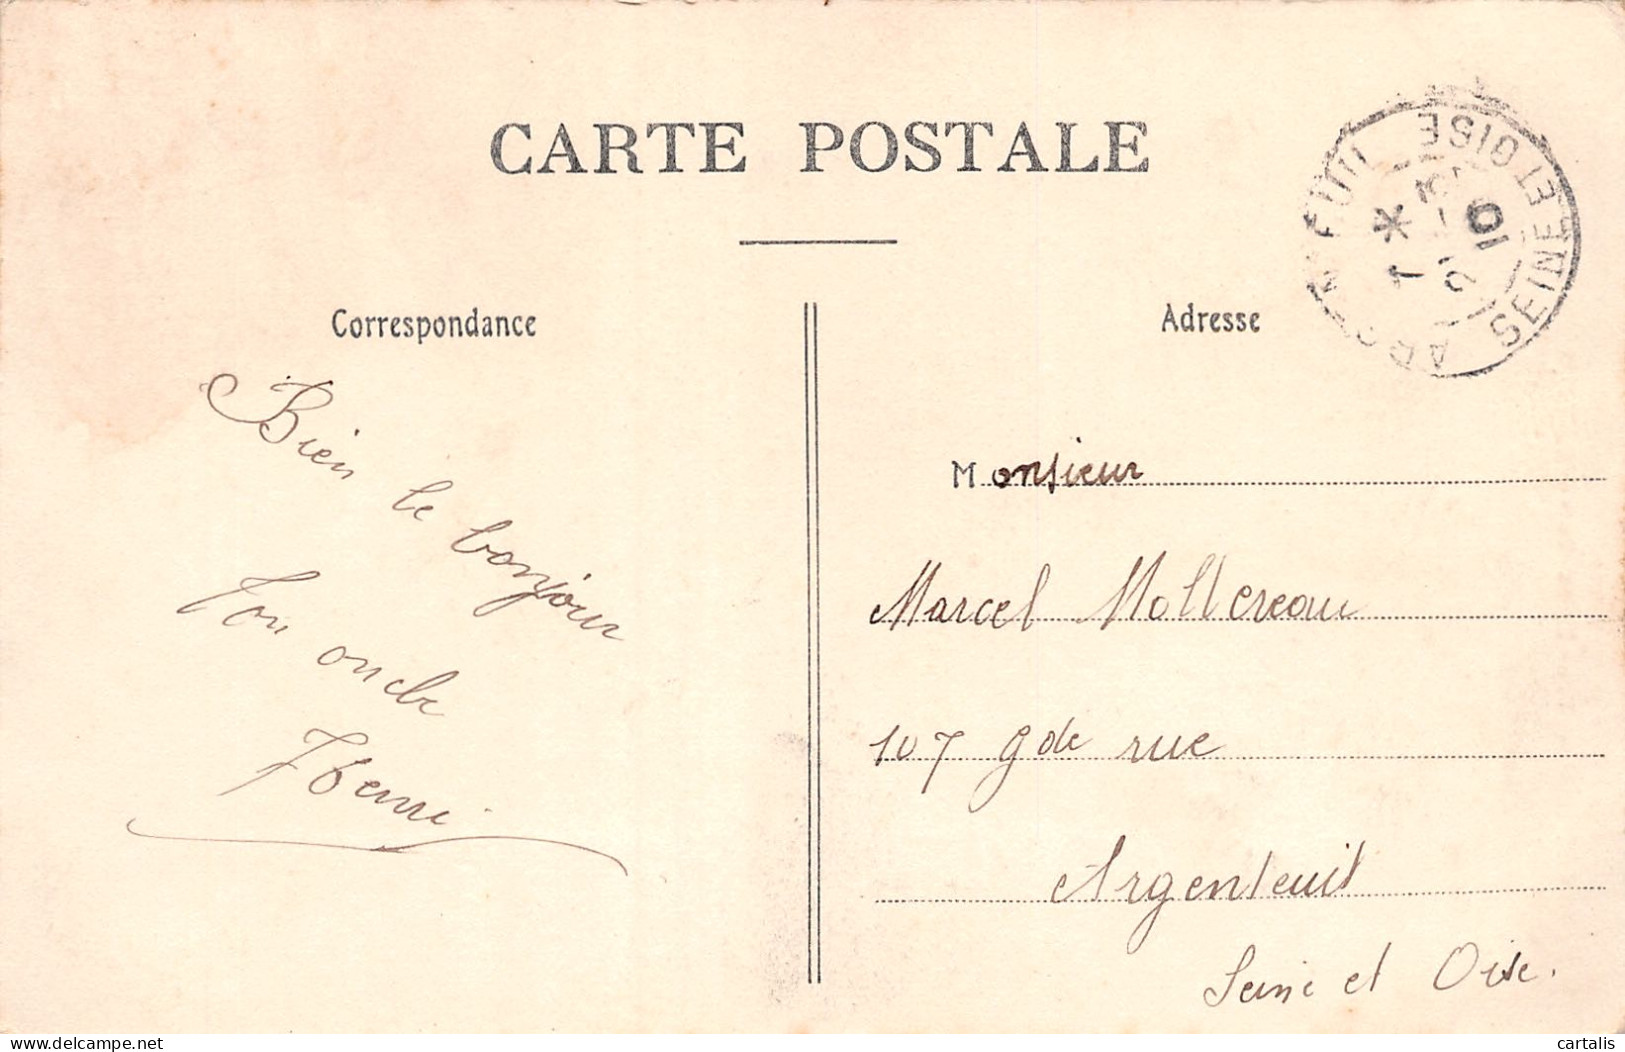 CARTE POSTALE
Correspondance
Bien le bonjour
Ton oncle
Henri
Adresse
Monsieur
Marcel Mottereau
107 gde rue
Argenteuil
Seine et Oise.
SEINE ET OISE
10
delcampe.net
cartalis